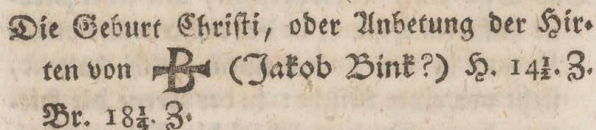 Die Geburt Christi, oder Anbetung der Hir-
ten von B (Jakob Bink?) H. 14½. Z.
Br. 18¼. Z.